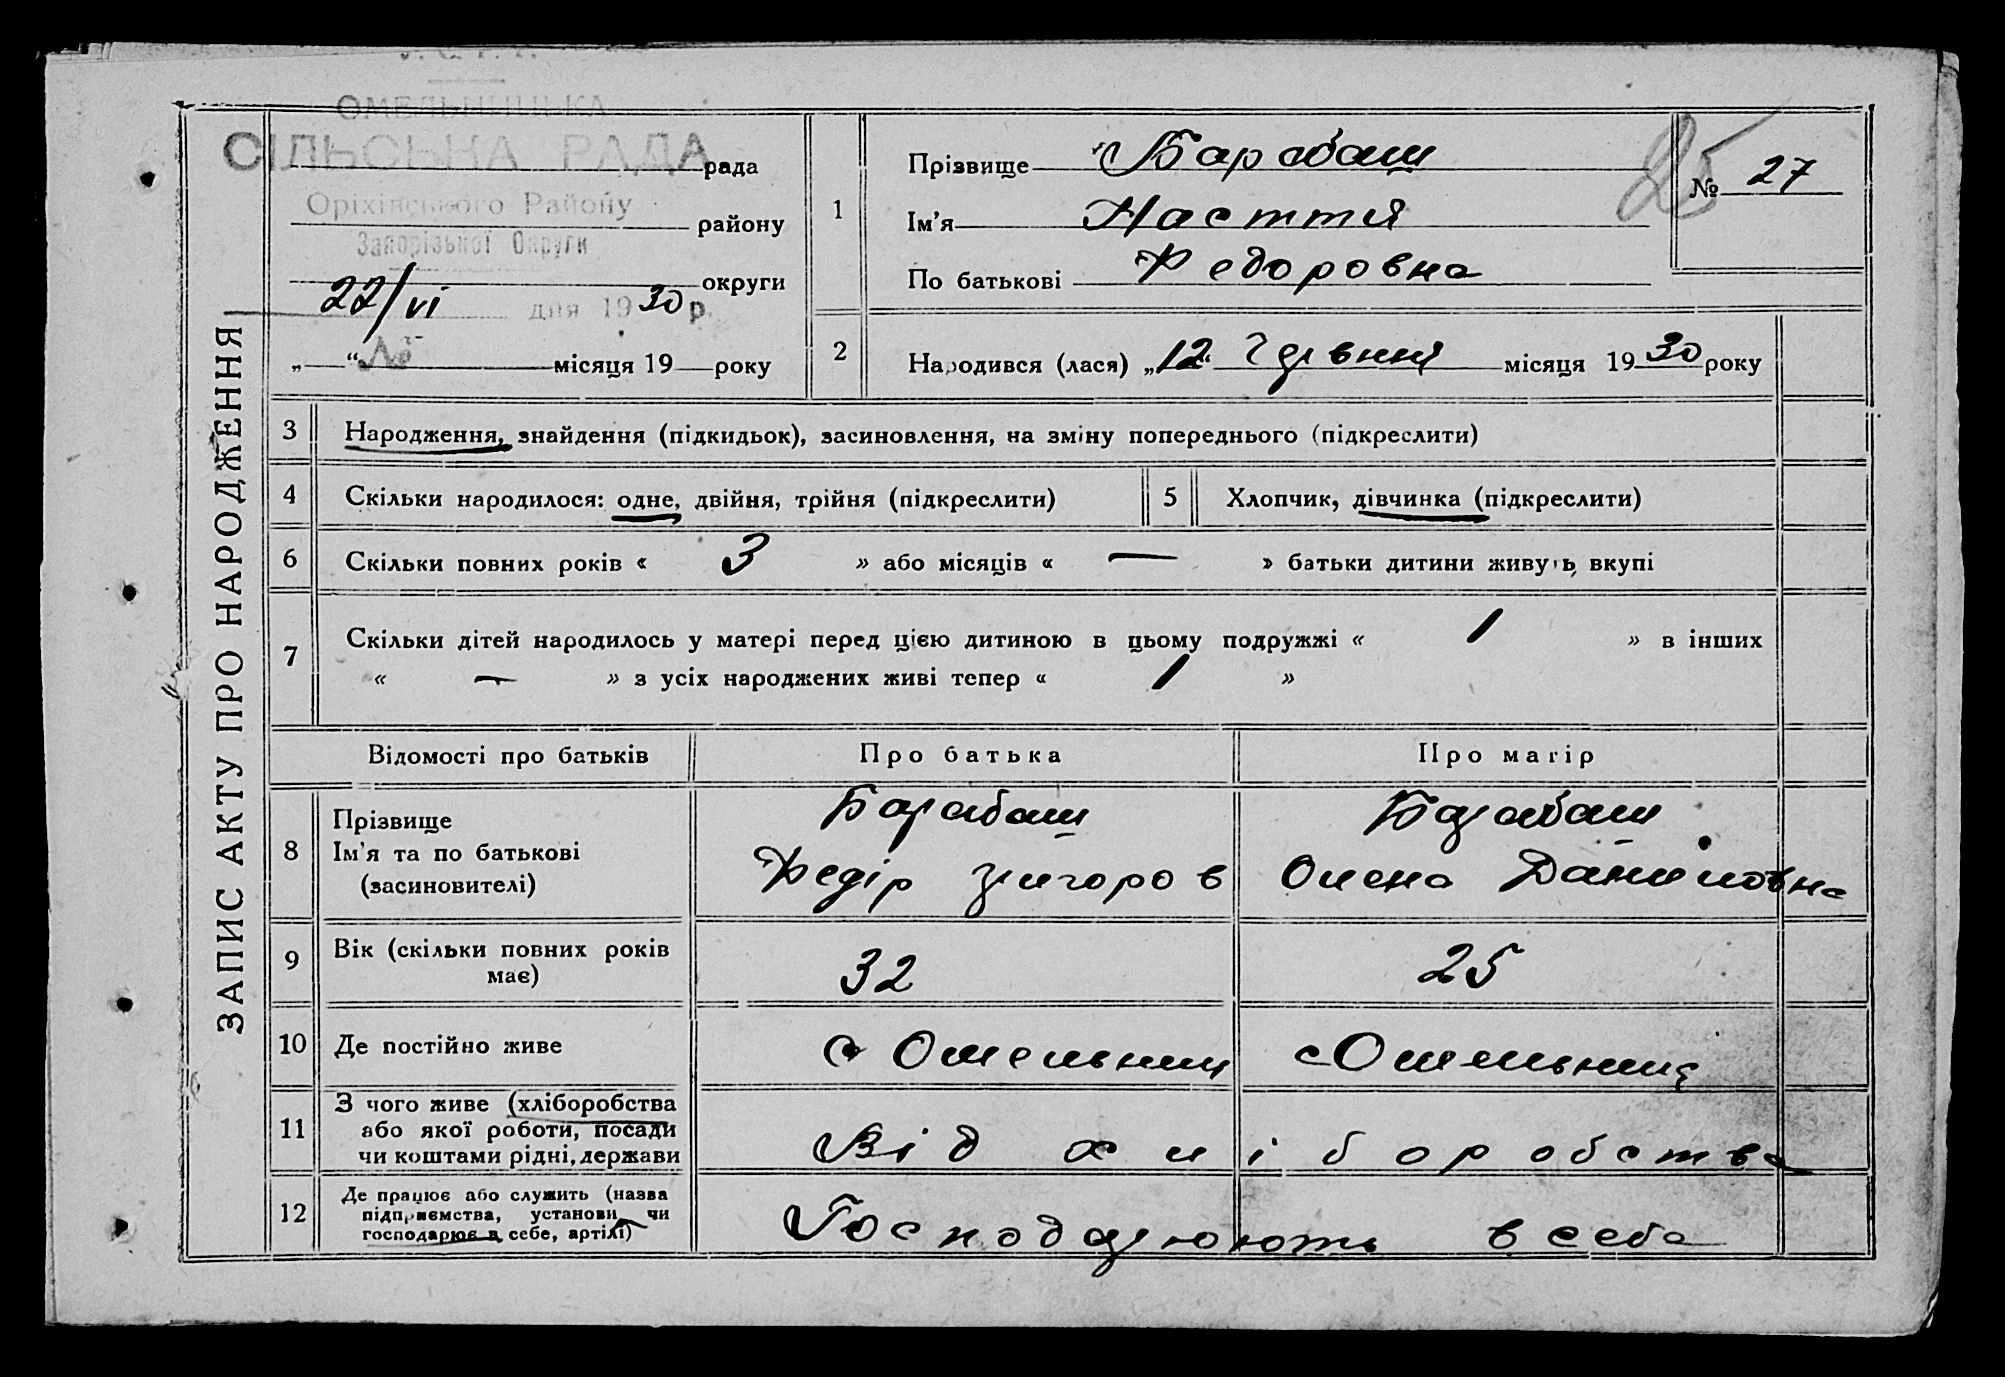 У. С. Р. Р.
ОМЕЛЬНИЦЬКА
СІЛЬСЬКА РАДА
рада
Оріхівського Району
району
Запорізької Округи
округи
22/VI дня 1930 р.
„ “ № місяця 19 року
1
Прізвище Барабаш
Ім’я Насття
По батькові Федоровна
25
№ 27
2
Народився (лася) „12“ Червня місяця 1930 року
ЗАПИС АКТУ ПРО НАРОДЖЕННЯ
3 Народження, знайдення (підкидьок), засиновлення, на зміну попереднього (підкреслити)
4 Скільки народилося: одне, двійня, трійня (підкреслити)
5 Хлопчик, дівчинка (підкреслити)
6 Скільки повних років « 3 » або місяців « — » батьки дитини живуть вкупі
7 Скільки дітей народилось у матері перед цією дитиною в цьому подружжі « 1 » в інших
« — » з усіх народжених живі тепер « 1 »
Відомості про батьків Про батька Про матір
8 Прізвище
Ім’я та по батькові
(засиновителі)
Барабаш
Федір Григоров
Барабаш
Олена Даниловна
9 Вік (скільки повних років
має)
32
25
10 Де постійно живе
с Омельник
с Омельник
11 З чого живе (хліборобства
або якої роботи, посади
чи коштами рідні, держави
Від хліборобства
12 Де працює або служить (назва
підприємства, установи чи
господарює в себе, артілі)
Господарюють в себе